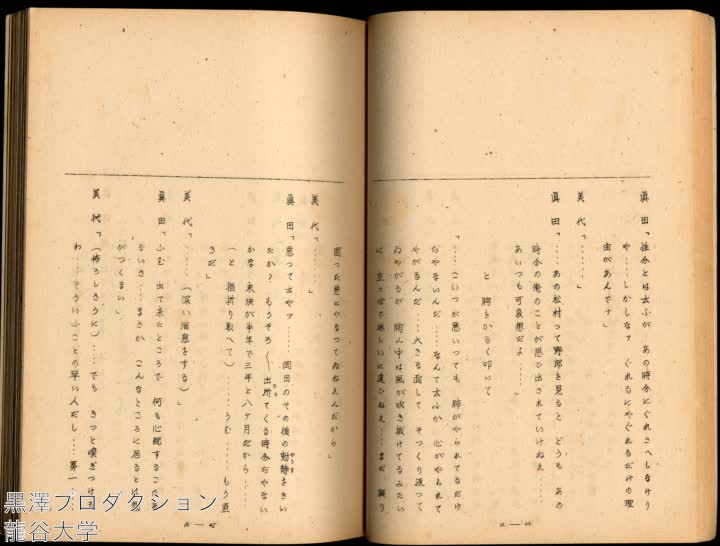 眞田「性分とは云ふが あの時分にぐれさへしなけり
や……しかしなァ ぐれるにやぐれるだけの理
由があんです」
美代「……」
眞田「……あの松村って野郎を見ると どうも あの
時分の俺のことが思ひ出されていけねえ……
あいつも可哀想だよ……」
と 胸をかるく叩いて
「……こいつが悪いっても 肺がやられてるだけ
ぢやないんだ……なんて云ふか 心がやられて
やがるんだ……大きな面して そっくり返って
ゐやがるが 胸ん中は風が吹き抜けてるみたい
に 立っぽで淋しいに違ひねえ……まだ
困った悪にやなってねねえんだから」
美代「……」
眞田「悪って云やァ…… 岡田のその後の動静をきい
たか? もうそろ〱出所てくる時分ぢやない
かな 未決が半年で三年と八ケ月だから……
(と 指折り数へて)……うむ……もう直
きだ」
美代「……(深い溜息をする)」
眞田「ふむ 出て来たところで 何も心配することた
ないさ……まさか こんなところに居るとは
がつくまい」
美代「(怖ろしさうに)……でも きっと嗅ぎつける
わ……そういふことの早い人だし……第一……
B — 44
B — 45
黒澤プロダクション
龍谷大学